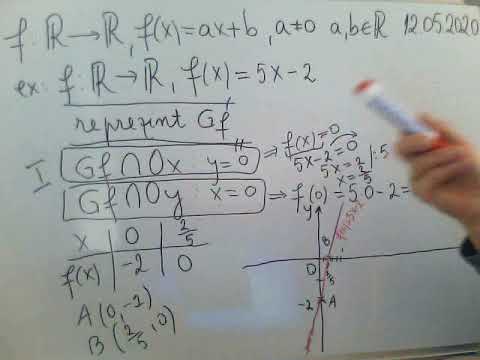 f: ℝ→ℝ, f(x)=ax+b, a≠0 a,b∈ℝ 12.05.2020
ex: f: ℝ→ℝ, f(x)=5x-2
reprezint Gf
I
Gf∩Ox y=0 ⇒ f(x)=0
5x-2=0
5x=2 |:5
x=2/5
Gf∩Oy x=0 ⇒ f(0)=5·0-2=
x | 0 | 2/5
f(x) | -2 | 0
A(0,-2)
B(2/5,0)
y
B
O
-2 A